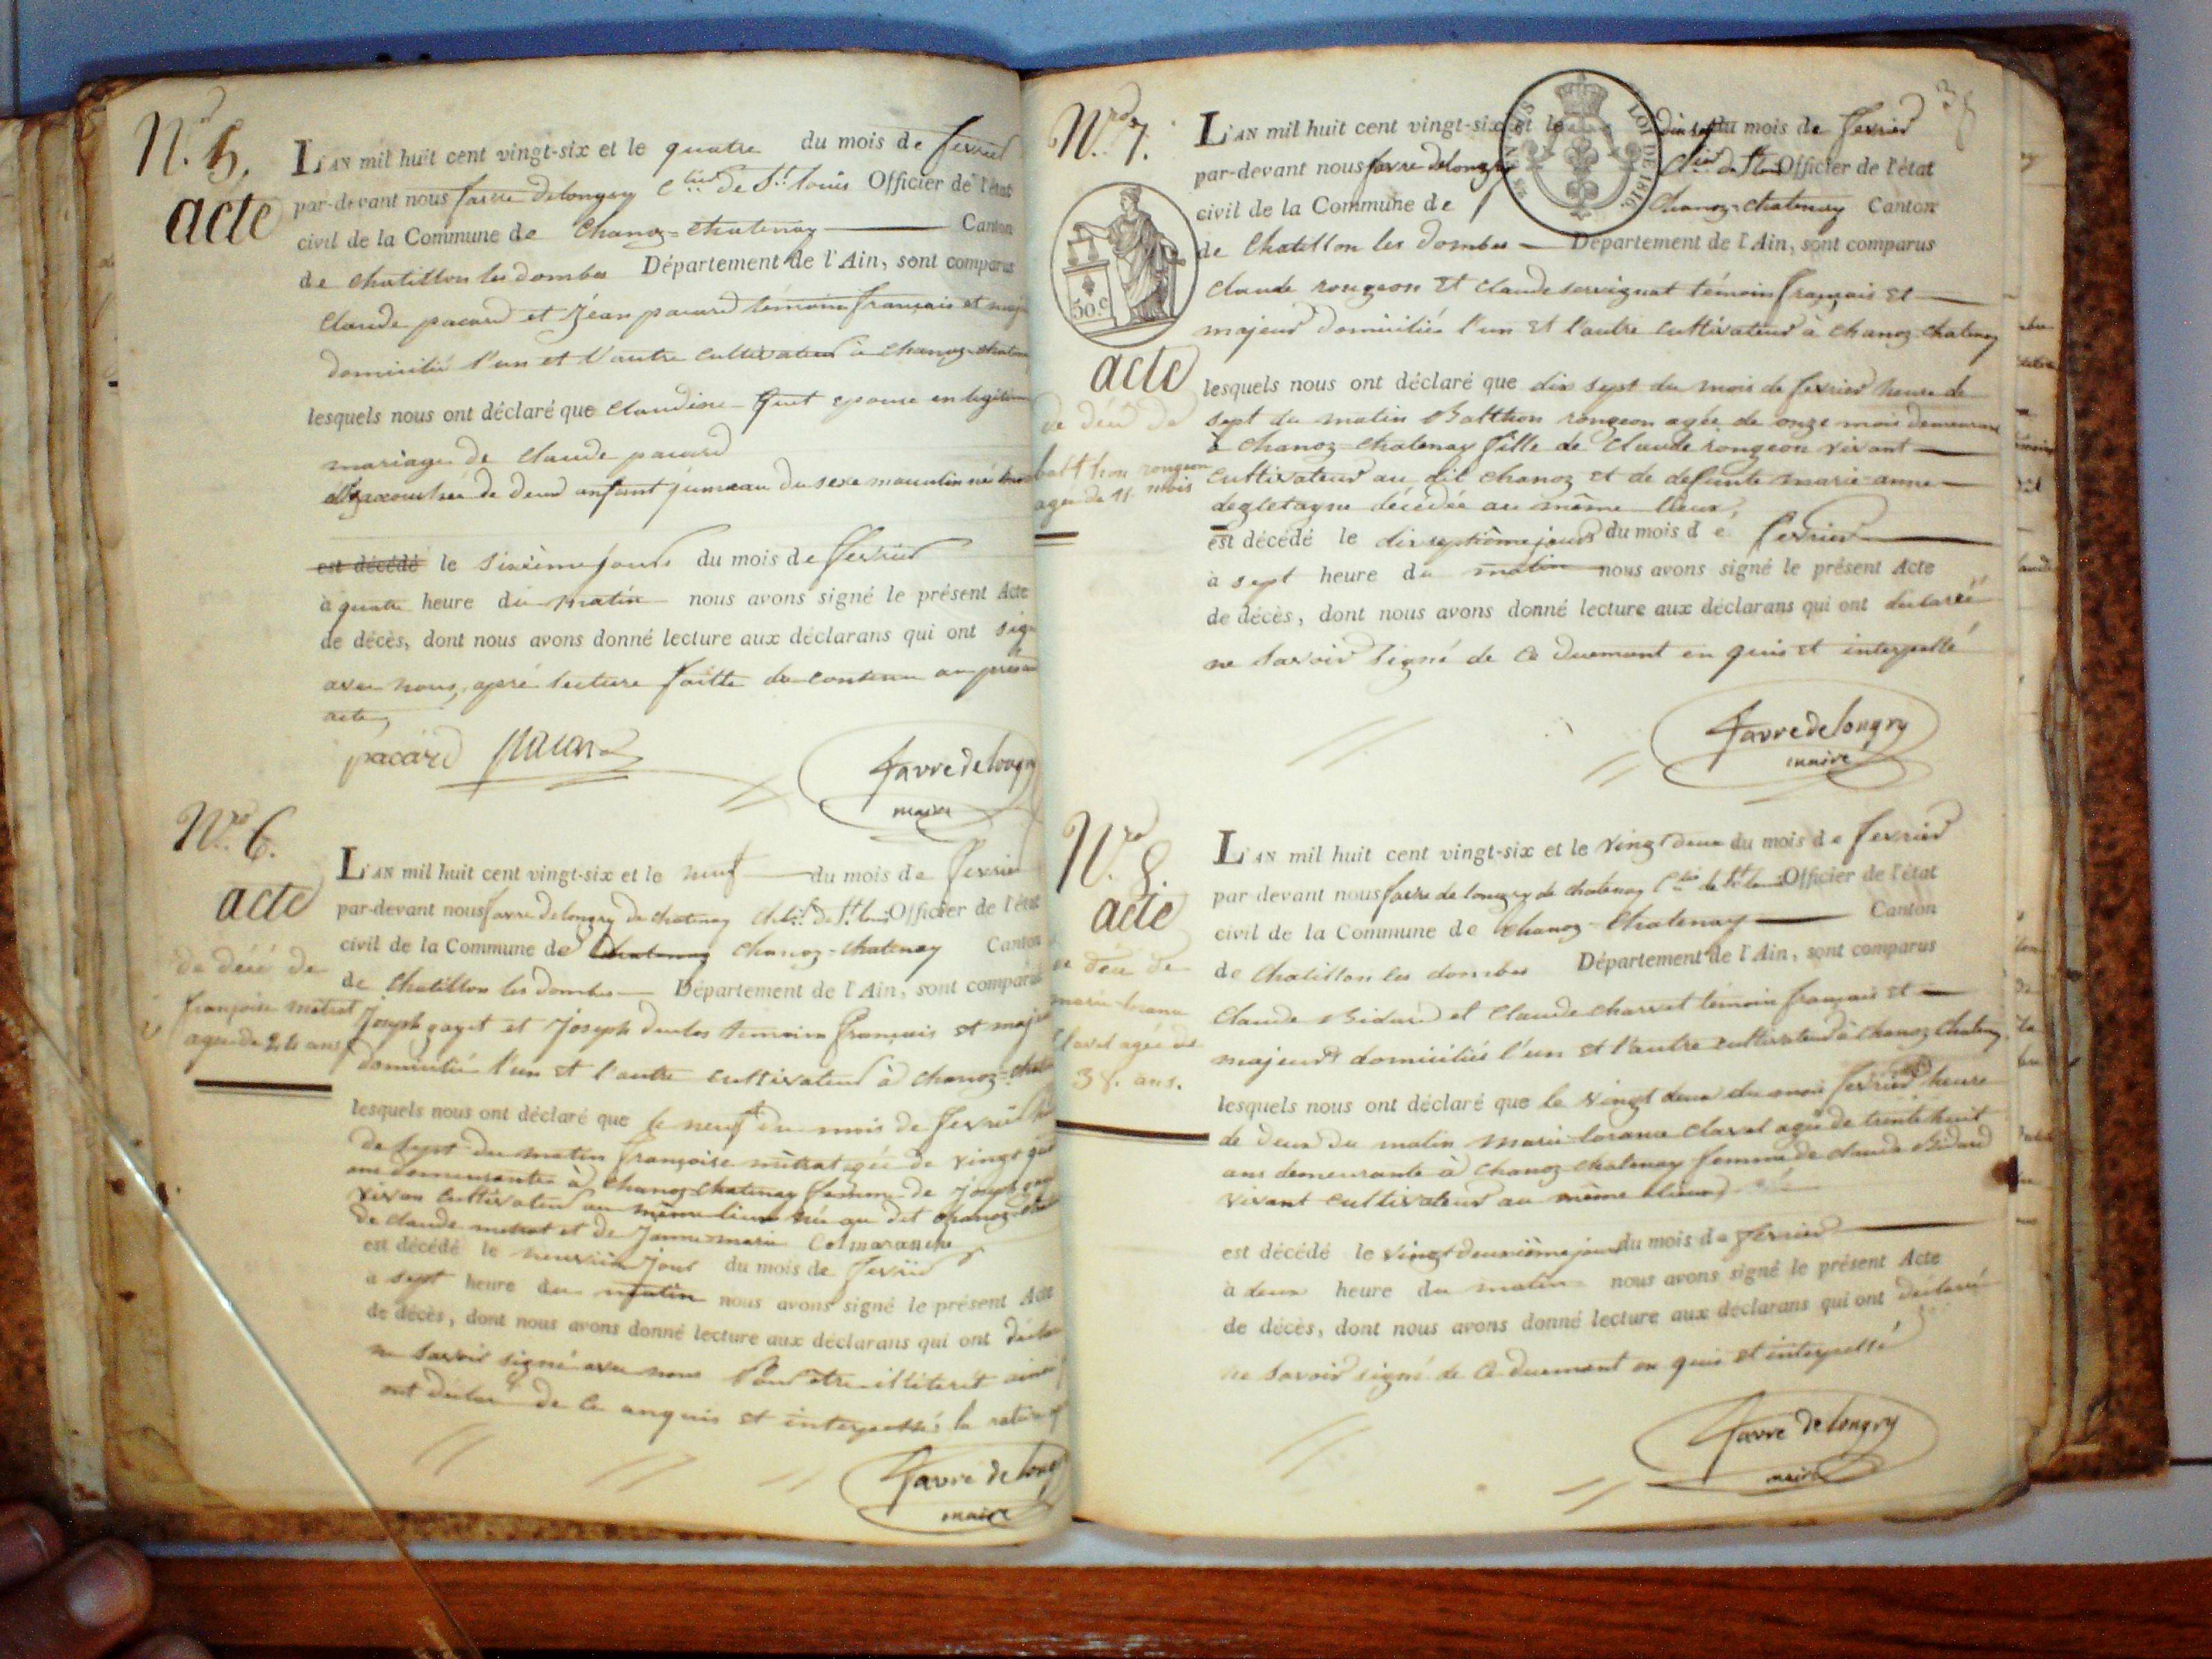 N.º 5.
acte
L'AN mil huit cent vingt-six et le quatre du mois de fevrier
par-devant nous favre delongry C.lier de S.t louis Officier de l'état
civil de la Commune de Chanoz=chatenay Canton
de chatillon les dombes Département de l'Ain, sont comparus
Claude pacard et Jéan pacard témoin français et
domicilié l'un et l'autre cultivateur à chanoz
lesquels nous ont déclaré que Claudine épouse en legitime
mariage de Claude pacard
de deux enfant jumeau du sexe masculin
est décédé le sixième jour du mois de fevrier
à quatre heure du matin nous avons signé le présent Acte
de décès, dont nous avons donné lecture aux déclarans qui ont
avec nous, apré lecture faitte du contenu au
acte
pacard pacard
favre de longry
maire
N.ro 6.
acte
de décé de
françoise métrat
agée de 24 ans
L'AN mil huit cent vingt-six et le neuf du mois de fevrier
par-devant nous favre delongry de chatenay de S.t louis Officier de l'état
civil de la Commune de chanoz-chatenay Canton
de Chatillon les dombes Département de l'Ain, sont comparus
Joseph gayet et Joseph temoin français et
domicilié l'un et l'autre cultivateur à chanoz
lesquels nous ont déclaré que le neuf du mois de fevrier
de sept du matin françoise métrat agée de vingt
ans demeurante à chanoz chatenay femme de Joseph
vivan cultivateur au même lieux née au dit chanoz
de claude metrat et de Janne marie
est décédé le neuvièm jour du mois de fevrier
à sept heure du matin nous avons signé le présent Acte
de décès, dont nous avons donné lecture aux déclarans qui ont
ne savoir signé avec nous pour etre illiteret ainsi
ont de ce anquis et interpellé
favre de
maire
38
N.ro 7.
25 CENTIMES
LOI DE 1816.
50.c
acte
de décé de
batthon rongeon
agée de 11 mois
L'AN mil huit cent vingt-six et le dix sept du mois de fevrier
par-devant nous favre delongry Officier de l'état
civil de la Commune de Chanoz-chatenay Canton
de Chatillon les dombes Département de l'Ain, sont comparus
Claude rongeon et claude servignat témoin français et
majeur domiciliés l'un et l'autre cultivateur à chanoz chatenay
lesquels nous ont déclaré que dix sept du mois de fevrier heure de
sept du matin Batthon rongeon agée de onze mois demeurant
à chanoz-chatenay fille de Claude rongeon vivant
cultivateur au dit chanoz et de defunte marie anne
décédée au même lieux,
est décédé le dixseptième jour du mois de fevrier
à sept heure du matin nous avons signé le présent Acte
de décès, dont nous avons donné lecture aux déclarans qui ont declaré
ne savoir signé de ce duement en quis et interpellé
favre de longry
maire
N.ro 8.
acte
de décé de
marie lorance
Clavel agée de
38. ans.
L'AN mil huit cent vingt-six et le vingt deux du mois de fevrier
par devant nous favre de longry de chatenay de S.t louis Officier de l'état
civil de la Commune de Chanoz-Chatenay Canton
de Chatillon les dombes Département de l'Ain, sont comparus
Claude Bidard et Claude charvet témoin français et
majeur domiciliés l'un et l'autre cultivateur à chanoz chatenay
lesquels nous ont déclaré que le vingt deux du mois fevrier heure
de deux du matin marie lorance clavel agée de trente huit
ans demeurante à chanoz chatenay femme de claude Bidard
vivant cultivateur au même lieux
est décédé le vingt deuxième jour du mois de fevrier
à deux heure du matin nous avons signé le présent Acte
de décès, dont nous avons donné lecture aux déclarans qui ont declaré
ne savoir signé de ce duement en quis et interpellé
favre de longry
maire